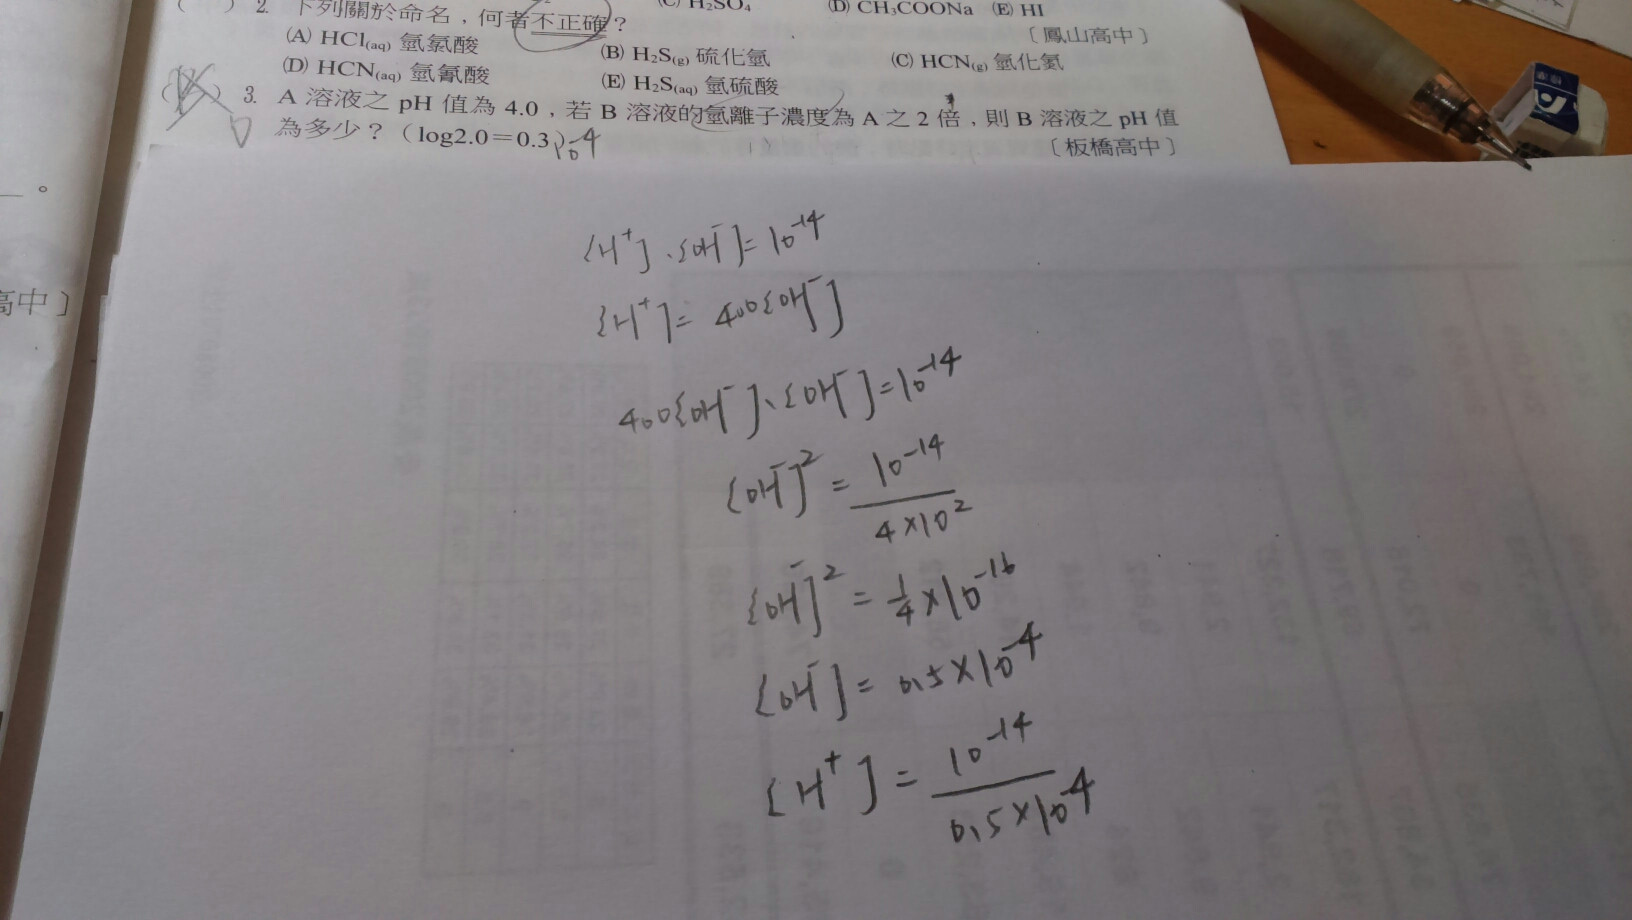 (C) H₂SO₄ (D) CH₃COONa (E) HI
( ) 2. 下列關於命名，何者不正確？
〔鳳山高中〕
(A) HCl(aq) 氫氯酸 (B) H₂S(g) 硫化氫 (C) HCN(g) 氫化氰
(D) HCN(aq) 氫氰酸 (E) H₂S(aq) 氫硫酸
3. A 溶液之 pH 值為 4.0，若 B 溶液的氫離子濃度為 A 之 2 倍，則 B 溶液之 pH 值
為多少？（log2.0＝0.3） 10⁻⁴ 〔板橋高中〕
。
高中〕
[H⁺].[OH⁻]=10⁻¹⁴
[H⁺]=400[OH⁻]
400[OH⁻].[OH⁻]=10⁻¹⁴
[OH⁻]²=10⁻¹⁴/4×10²
[OH⁻]²=1/4×10⁻¹⁶
[OH⁻]=0.5×10⁻⁴
[H⁺]=10⁻¹⁴/0.5×10⁻⁴